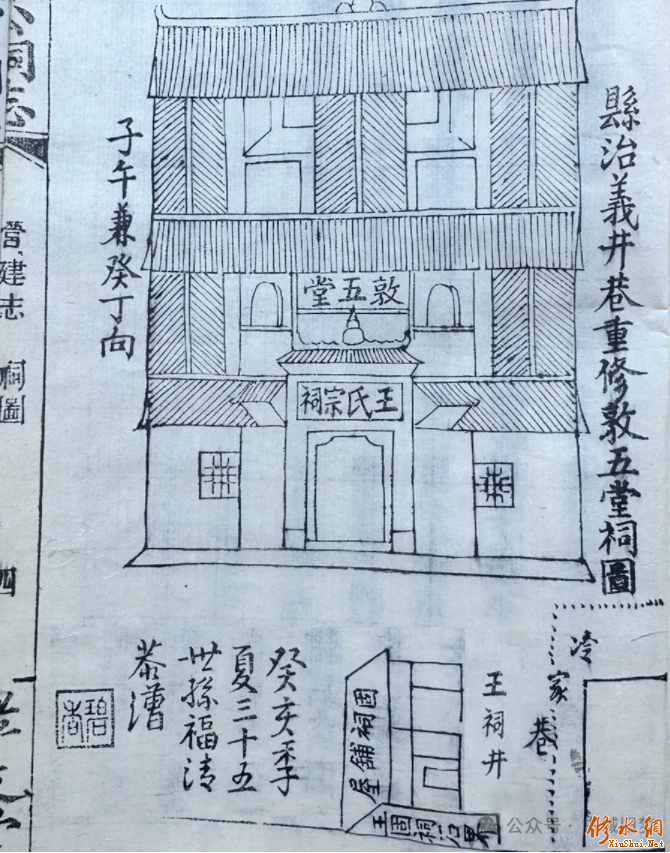 縣治義井巷重修敦五堂祠圖
敦五堂
王氏宗祠
子午兼癸丁向
冷家巷
王祠井
祠舖屋
癸亥季
夏三十五
世孫福清
恭
祠志
建志 祠圖
四
公众号
修水網
XinShui.Net